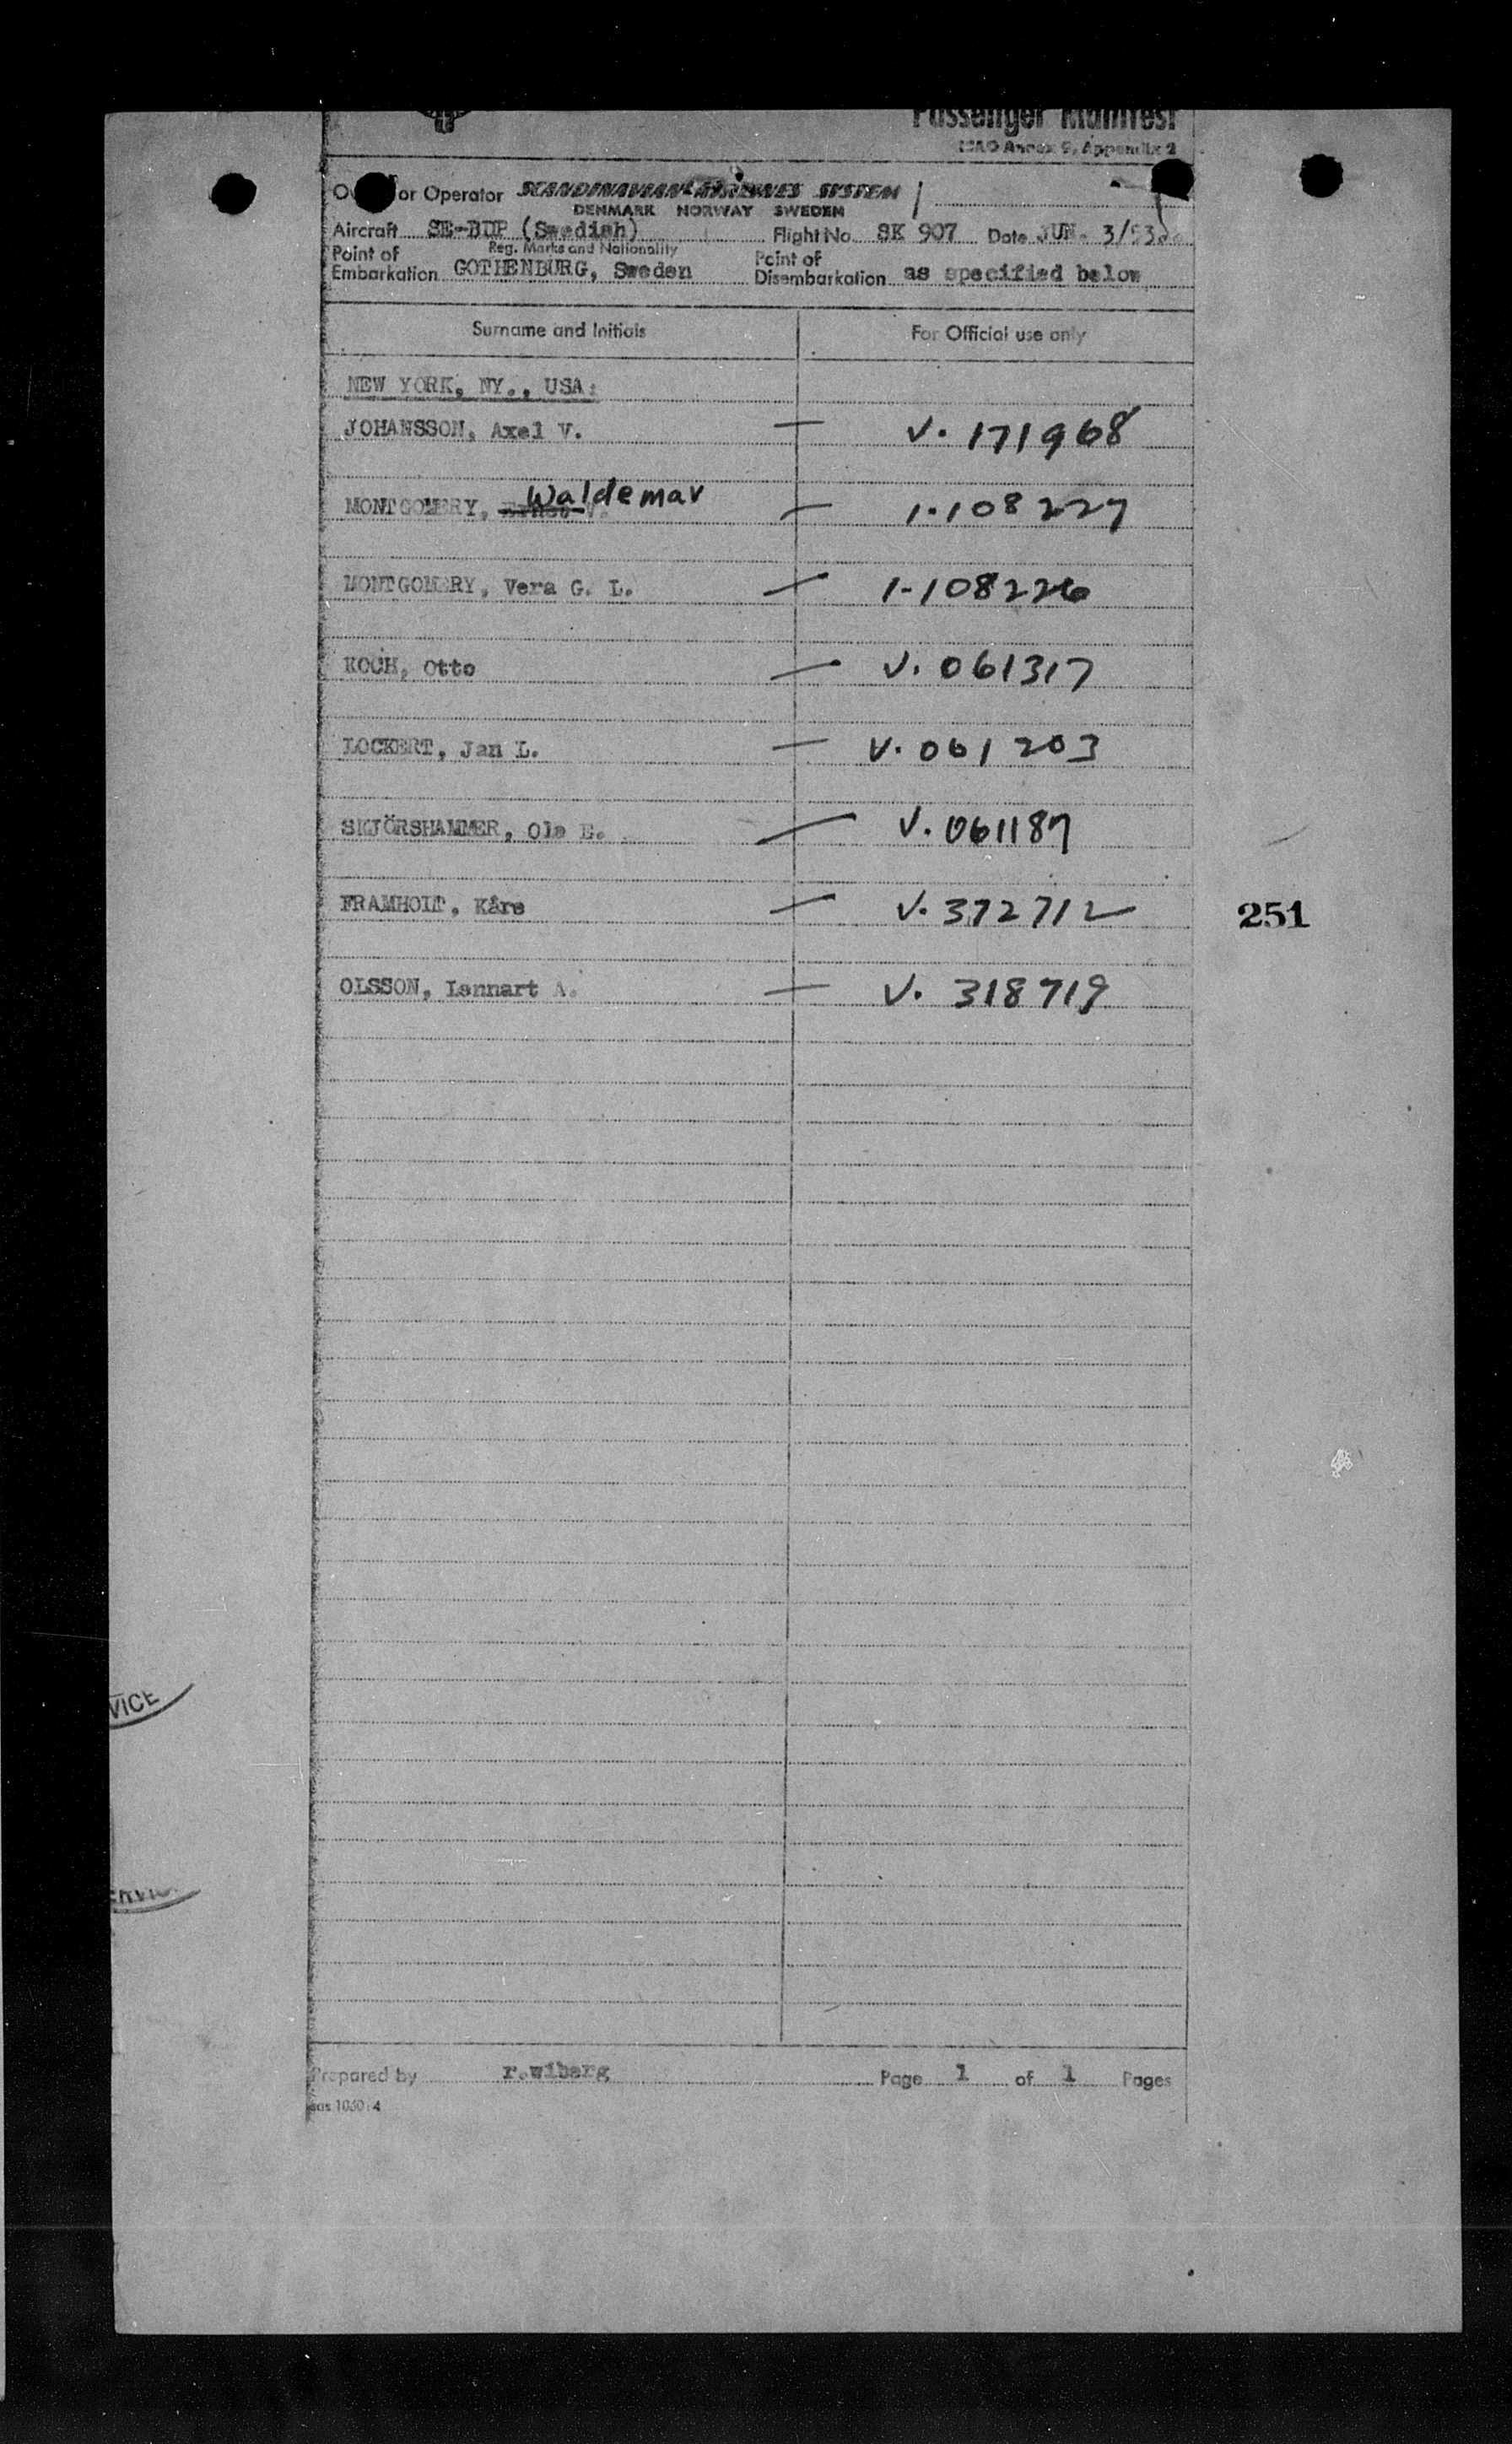 Passenger Manifest
ICAO Annex 9, Appendix 2
or Operator SCANDINAVIAN AIRLINES SYSTEM
DENMARK NORWAY SWEDEN
Aircraft SE-BDP (Swedish) Flight No. SK 907 Date JUN. 3/53
Reg. Marks and Nationality
Point of Embarkation GOTHENBURG, Sweden Point of Disembarkation as specified below
Surname and Initials For Official use only
NEW YORK, NY., USA:
JOHANSSON, Axel V. — V. 171968
Waldemar
MONTGOMERY, V. — 1-108227
MONTGOMERY, Vera G. L. — 1-108226
KOCH, Otto — V. 061317
LOCKERT, Jan L. — V. 061203
SKJÖRSHAMMER, Ole E. — V. 061187
FRAMHOLT, Kåre — V. 372712
251
OLSSON, Lennart A. — V. 318719
VICE
ERVIC
Prepared by r.wiberg Page 1 of 1 Pages
sas 1030:4